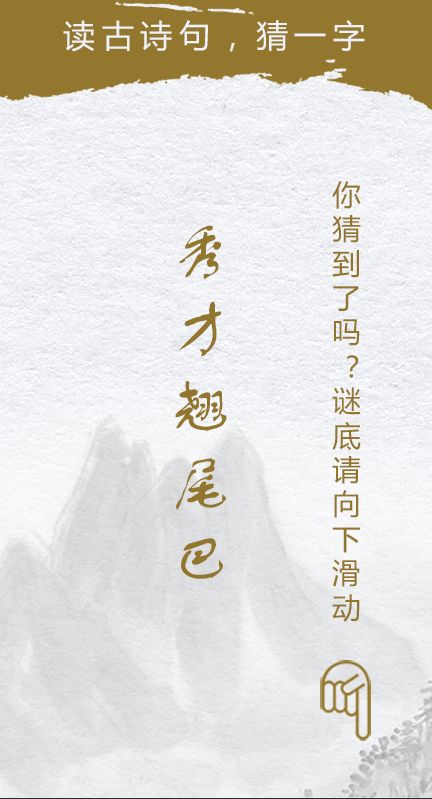 读古诗句，猜一字
你猜到了吗？谜底请向下滑动
秀才翘尾巴